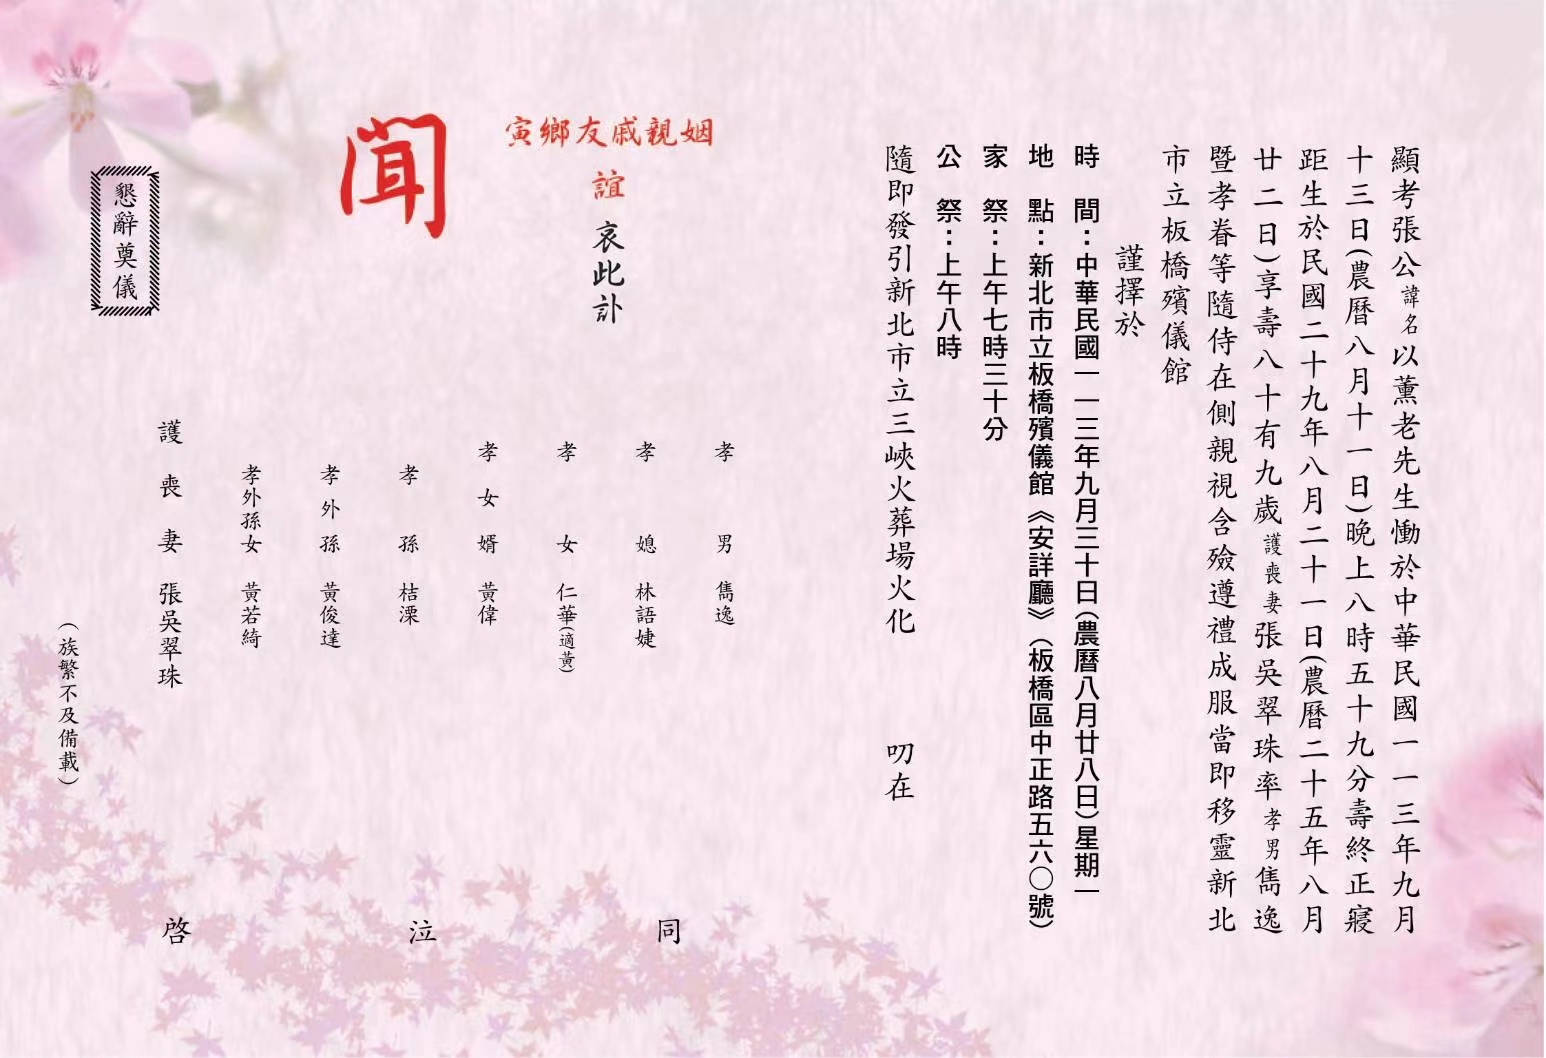 顯考張公諱名以薰老先生慟於中華民國一一三年九月
十三日(農曆八月十一日)晚上八時五十九分壽終正寢
距生於民國二十九年八月二十一日(農曆二十五年八月
廿二日)享壽八十有九歲護喪妻張吳翠珠率孝男雋逸
暨孝眷等隨侍在側親視含殮遵禮成服當即移靈新北
市立板橋殯儀館
謹擇於
時間：中華民國一一三年九月三十日(農曆八月廿八日)星期一
地點：新北市立板橋殯儀館《安詳廳》(板橋區中正路五六〇號)
家祭：上午七時三十分
公祭：上午八時
隨即發引新北市立三峽火葬場火化 叨在
姻親戚友鄉寅
誼哀此訃
聞
孝男 雋逸
孝媳 林語婕
孝女 仁華(適黃)
孝女婿 黃偉
孝孫 桔溧
孝外孫 黃俊達
孝外孫女 黃若綺
護喪妻 張吳翠珠
同泣啓
(族繁不及備載)
懇辭奠儀